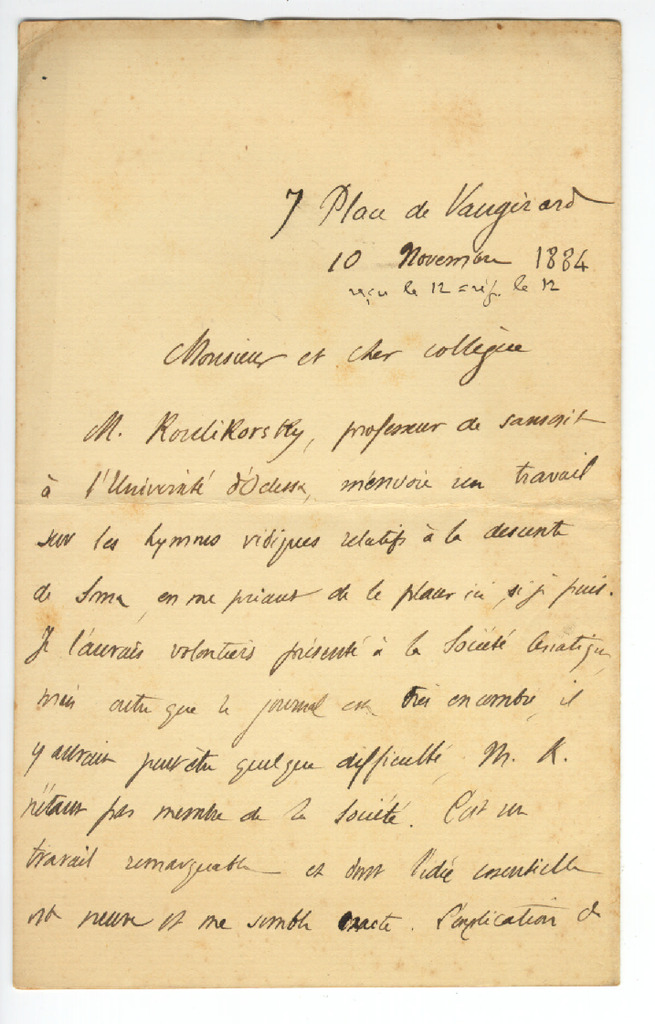 7 Place de Vaugirard
10 Novembre 1884
reçu le 12 = rép. le 12
Monsieur et cher collègue
M. Koulikorsky, professeur de sanscrit
à l'Université d'Odessa, m'envoie un travail
sur les hymnes védiques relatifs à la descente
de Soma, en me priant de le placer ici, si je puis.
Je l'aurais volontiers présenté à la Société Asiatique,
mais outre que le journal est très encombré, il
y aurait peut être quelque difficulté, M. K.
n'étant pas membre de la Société. C'est un
travail remarquable et dont l'idée essentielle
est neuve et me semble exacte. L'explication de